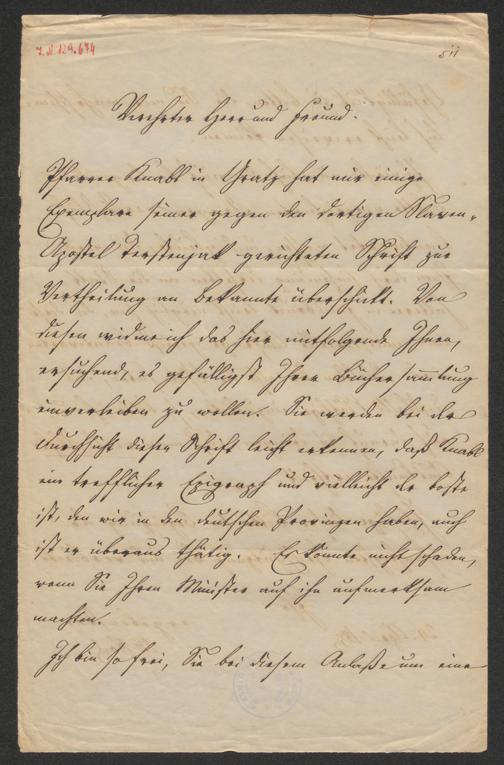 I.N. 129.674
511
Verehrter Herr und Freund.
Pfarrer Knabl in Gratz hat mir einige
Exemplare seiner gegen den dortigen Slaven-
Apostel Terstenjak gerichteten Schrift zur
Vertheilung an Bekannte überschickt. Von
diesen widme ich das hier mitfolgende Ihnen,
ersuchend, es gefälligst Ihrer Büchersammlung
einverleiben zu wollen. Sie werden bei der
Durchsicht dieser Schrift leicht erkennen, daß Knabl
ein trefflicher Epigraph und vielleicht der beste
ist, den wir in den deutschen Provinzen haben, auch
ist er überaus thätig. Es könnte nicht schaden,
wenn Sie Ihren Minister auf ihn aufmerksam
machten.
Ich bin so frei, Sie bei diesem Anlaße um eine